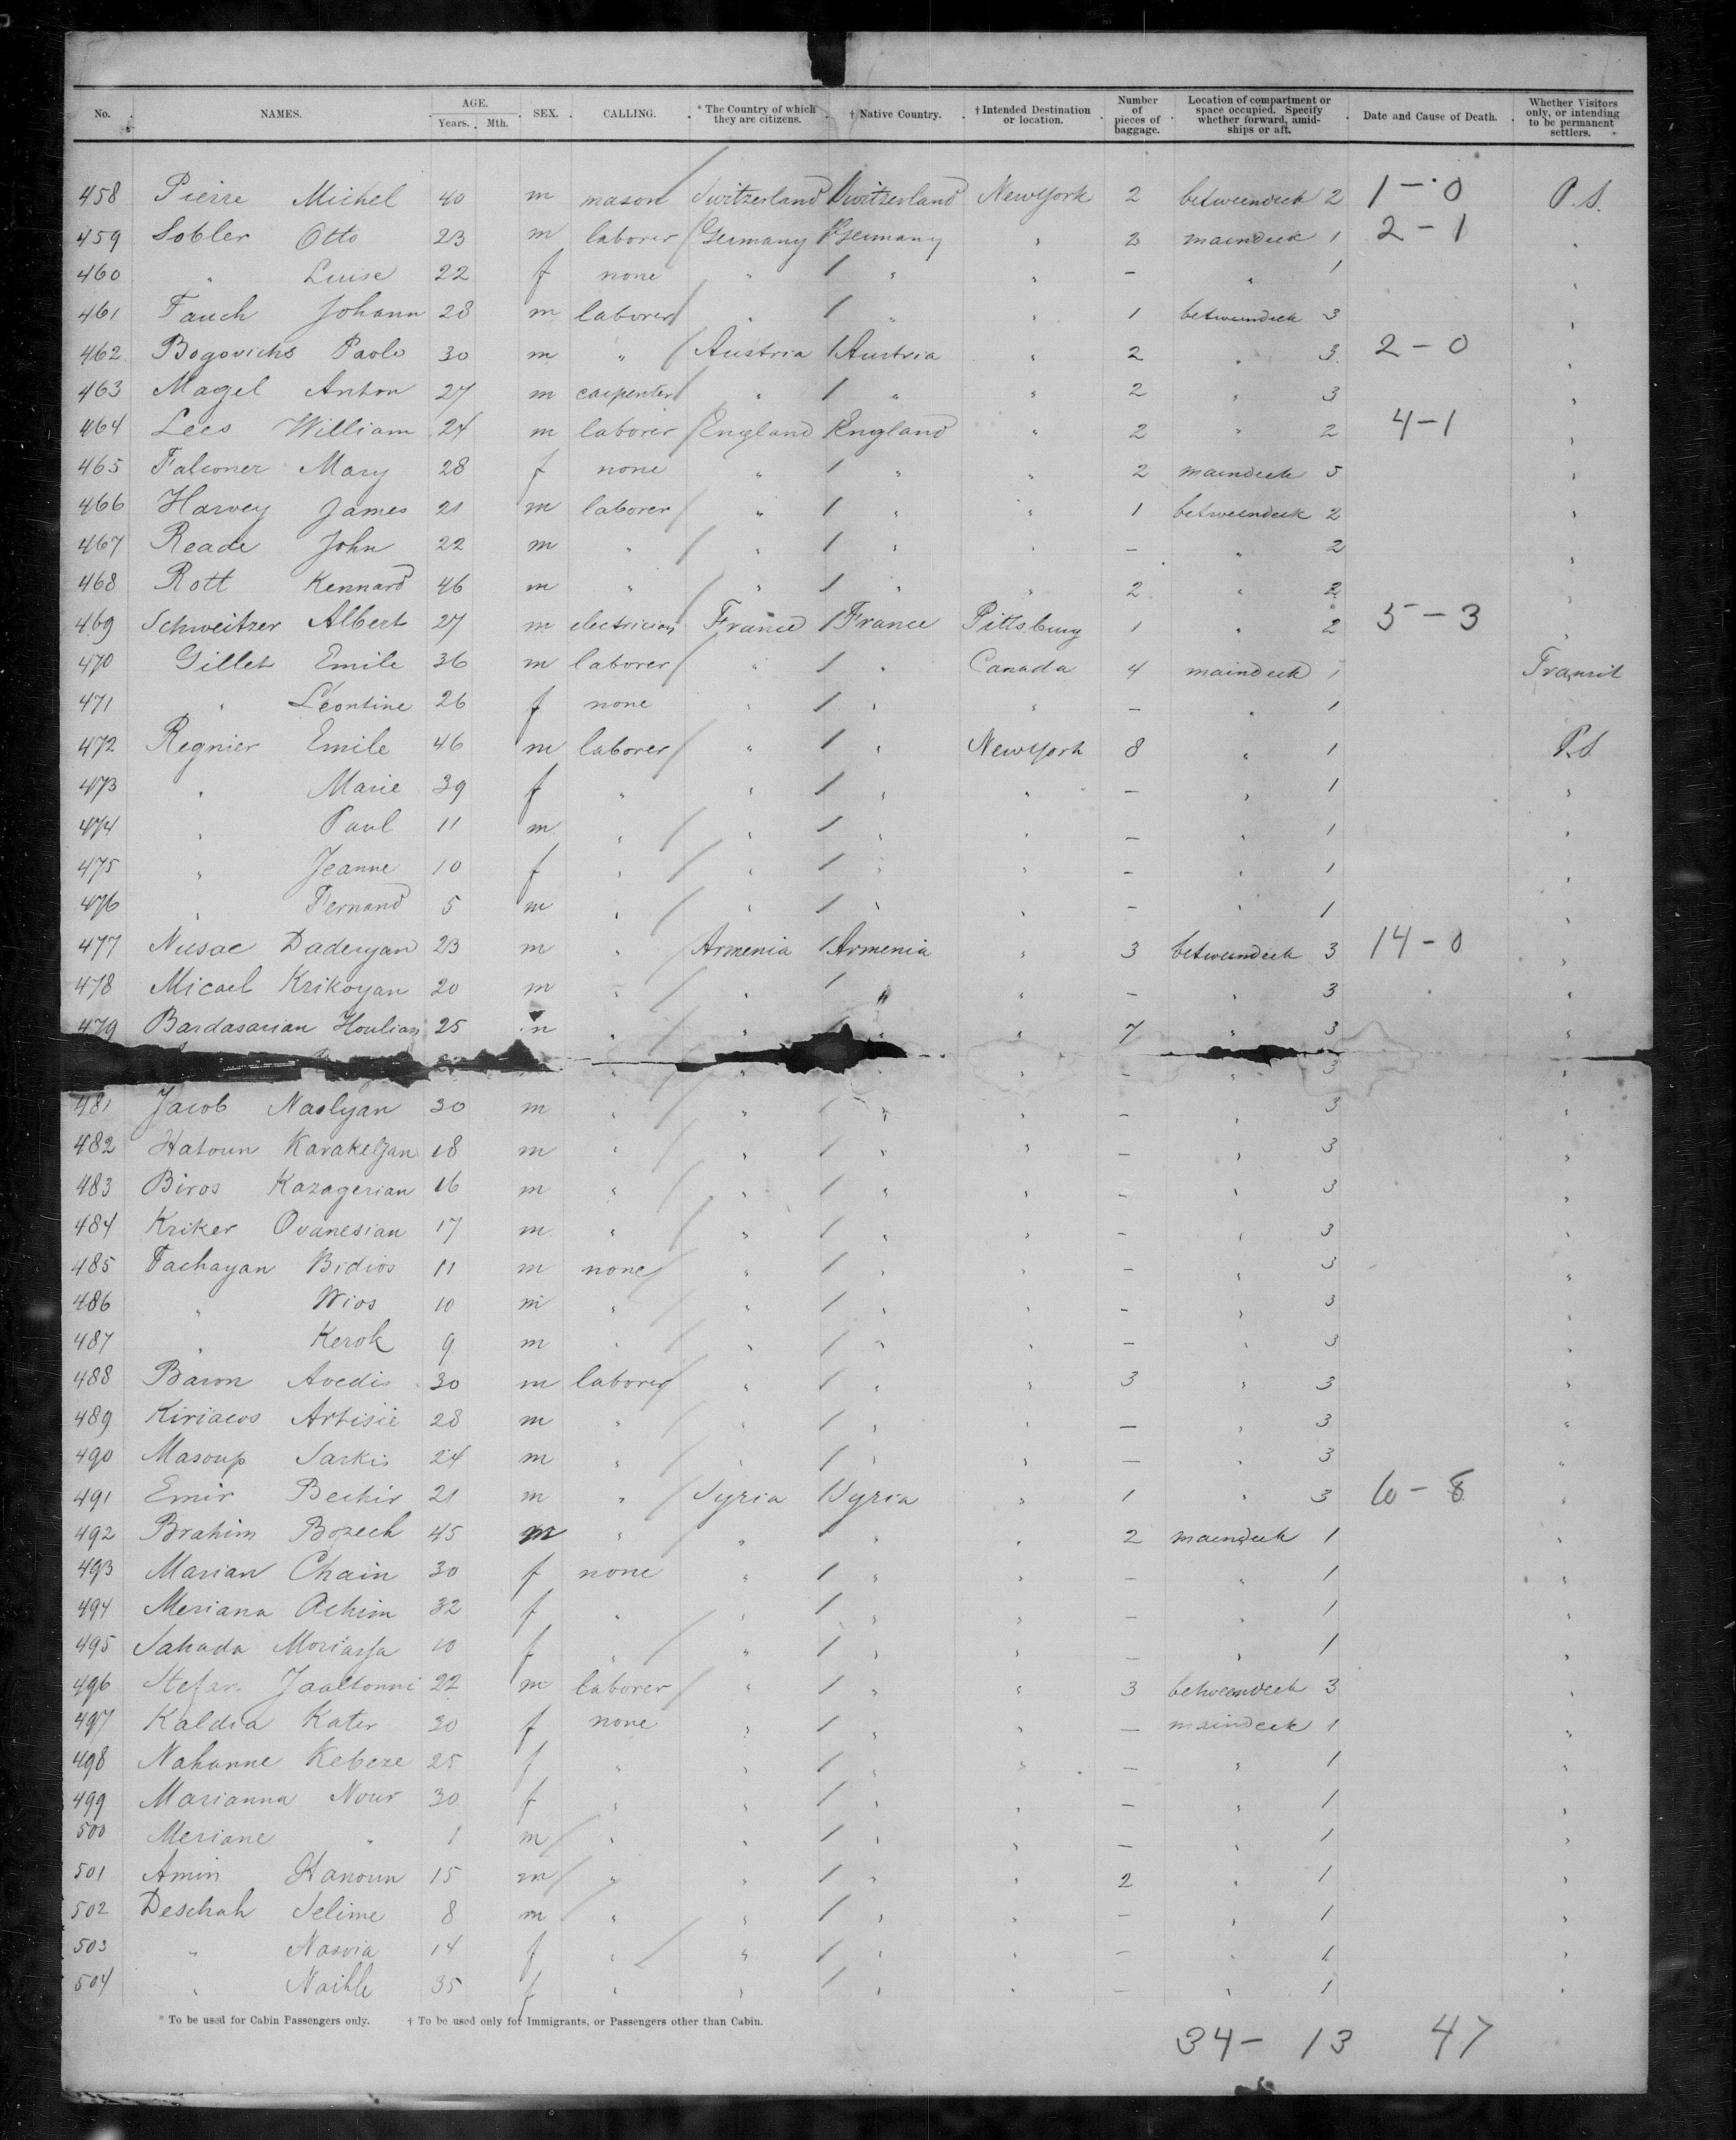 No. NAMES. AGE. Years. Mth. SEX. CALLING. * The Country of which they are citizens. † Native Country. † Intended Destination or location. Number of pieces of baggage. Location of compartment or space occupied. Specify whether forward, amidships or aft. Date and Cause of Death. Whether Visitors only, or intending to be permanent settlers.
458 Pierre Michel 40 m mason Switzerland Switzerland NewYork 2 betweendeck 2 1-0 P.S.
459 Sobler Otto 23 m laborer Germany Germany " 2 maindeck 1 2-1 "
460 " Luise 22 f none " " " - " 1 "
461 Fauch Johann 28 m laborer " " " 1 betweendeck 3 "
462 Bogovichs Paolo 30 m " Austria Austria " 2 " 3 2-0 "
463 Magel Anton 27 m carpenter " " " 2 " 3 "
464 Lees William 24 m laborer England England " 2 " 2 4-1 "
465 Falconer Mary 28 f none " " " 2 maindeck 5 "
466 Harvey James 21 m laborer " " " 1 betweendeck 2 "
467 Reade John 22 m " " " " - " 2 "
468 Rott Kennard 46 m " " " " 2 " 2 "
469 Schweitzer Albert 27 m electrician France France Pittsburg 1 " 2 5-3 "
470 Gillet Emile 36 m laborer " " Canada 4 maindeck 1 Transit
471 " Léontine 26 f none " " " - " 1
472 Regnier Emile 46 m laborer " " NewYork 8 " 1 P.S.
473 " Marie 39 f " " " " - " 1 "
474 " Paul 11 m " " " " - " 1 "
475 " Jeanne 10 f " " " " - " 1 "
476 " Fernand 5 m " " " " - " 1 "
477 Nusac Daderyan 23 m " Armenia Armenia " 3 betweendeck 3 14-0 "
478 Micael Krikoyan 20 m " " " " - " 3 "
479 Bardasarian Houlian 25 m " " " " 7 " 3 "
" " " " - " 3 "
481 Jacob Naolyan 30 m " " " " - " 3 "
482 Hatoun Karakeljan 18 m " " " " - " 3 "
483 Biros Kazagerian 16 m " " " " - " 3 "
484 Kriker Ovanesian 17 m " " " " - " 3 "
485 Fachayan Bidios 11 m none " " " - " 3 "
486 " Wios 10 m " " " " - " 3 "
487 " Kerok 9 m " " " " - " 3 "
488 Baron Avedis 30 m laborer " " " 3 " 3 "
489 Kiriacos Artisie 28 m " " " " - " 3 "
490 Masoup Sarkis 24 m " " " " - " 3 "
491 Emir Bechir 21 m " Syria Syria " 1 " 3 6-8 "
492 Brahim Bozech 45 m " " " " 2 maindeck 1 "
493 Marian Chain 30 f none " " " - " 1 "
494 Meriana Achim 32 f " " " " - " 1 "
495 Sahada Moriassa 10 f " " " " - " 1 "
496 Stefan Jaaltonni 22 m laborer " " " 3 betweendeck 3 "
497 Kaldia Kater 30 f none " " " - maindeck 1 "
498 Nahanne Kebeze 25 f " " " " - " 1 "
499 Marianna Nour 30 f " " " " - " 1 "
500 Meriane " 1 m " " " " - " 1 "
501 Amin Hanoun 15 m " " " " 2 " 1 "
502 Deschah Selime 8 m " " " " - " 1 "
503 " Nasvia 14 f " " " " - " 1 "
504 " Naihle 35 f " " " " - " 1 "
* To be used for Cabin Passengers only. † To be used only for Immigrants, or Passengers other than Cabin.
34- 13 47